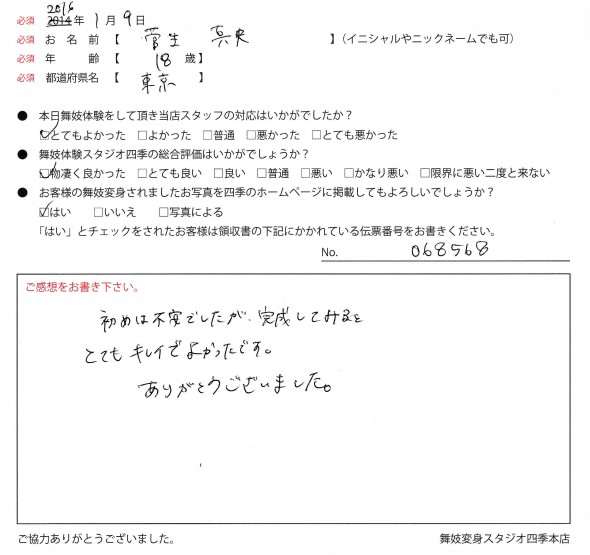 2016
必須 2014年 1月 9日
必須 お名前【 菅生 真央 】(イニシャルやニックネームでも可)
必須 年齢【 18歳】
必須 都道府県名【 東京 】
● 本日舞妓体験をして頂き当店スタッフの対応はいかがでしたか?
☑とてもよかった □よかった □普通 □悪かった □とても悪かった
● 舞妓体験スタジオ四季の総合評価はいかがでしょうか?
☑物凄く良かった □とても良い □良い □普通 □悪い □かなり悪い □限界に悪い二度と来ない
● お客様の舞妓変身されましたお写真を四季のホームページに掲載してもよろしいでしょうか?
☑はい □いいえ □写真による
「はい」とチェックをされたお客様は領収書の下記にかかれている伝票番号をお書きください。
No. 068568
ご感想をお書き下さい。
初めは不安でしたが、完成してみると
とてもキレイでよかったです。
ありがとうございました。
ご協力ありがとうございました。 舞妓変身スタジオ四季本店